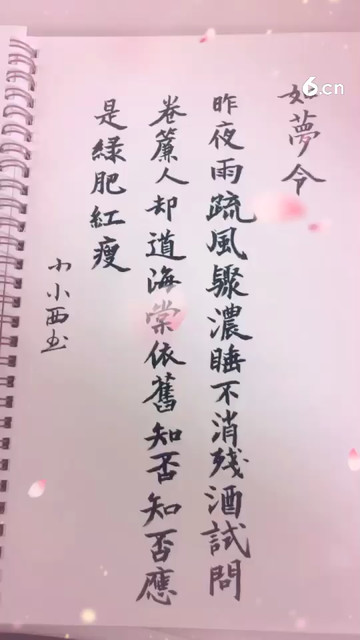 如夢令
昨夜雨疏風驟濃睡不消殘酒試問
卷簾人却道海棠依舊知否知否應
是綠肥紅瘦
小小西书
6.cn